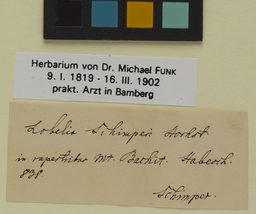 Herbarium von Dr. Michael FUNK
9. I. 1819 - 16. III. 1902
prakt. Arzt in Bamberg
Lobelia Schimperi Hochst
in rupestribus Mt. Bachit. Habessch.
Schimper.